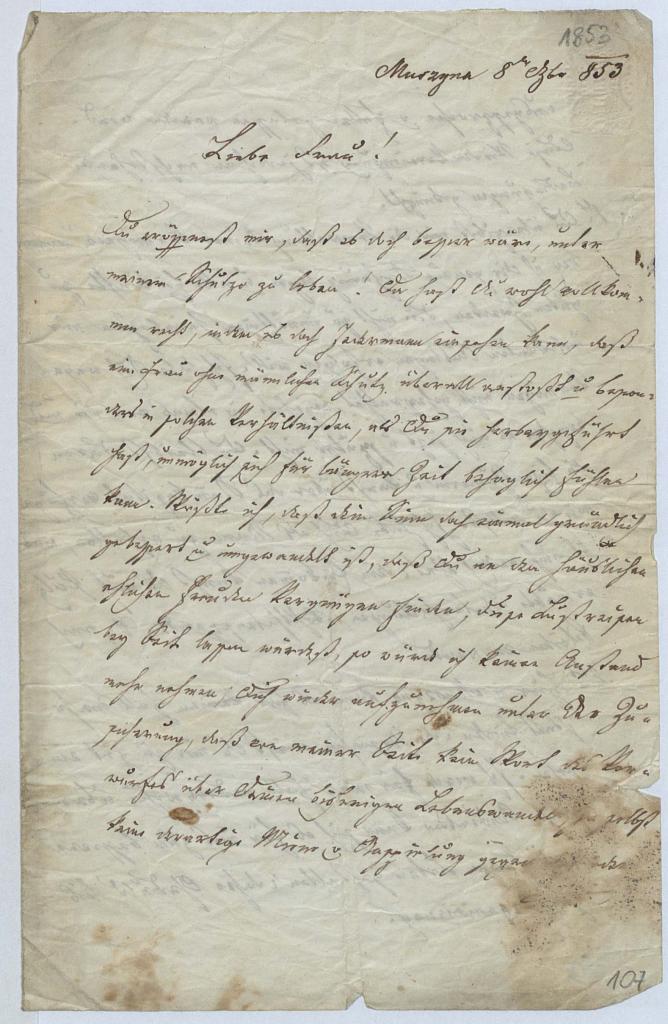 1853
Muszyna 8ten 853
Liebe Frau!
Du eröffnest mir, daß es doch besser wäre, unter
meinem Schutze zu leben! Da hast du wohl vollkom-
men recht, indem es doch Jedermann einsehen kann, daß
eine Frau ohne männlichen Schutz überall anstoßt u beson-
ders in solchen Verhältnißen, als Du sie herbeygeführt
hast, unmöglich sich für längere Zeit behaglich fühlen
kann. Wüßte ich, daß dein Sinn doch einmal gründlich
gebessert u umgewandelt ist, daß Du an den häuslichen
ehlichen Freuden Vergnügen finden, diese
bey Seite lassen würdest, so würde ich keinen Anstand
mehr nehmen Dich wieder aufzunehmen unter der Zu-
sicherung, daß von meiner Seite kein Wort des Vor-
wurfes über Deinen bisherigen Lebenswandel selbst
keine derartige Miene
107